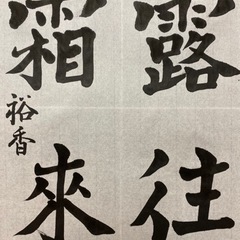 露往
霜來
裕香